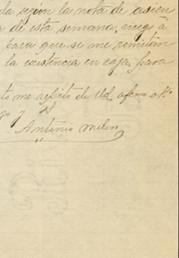 da según la nota de
de esta semana, ruego á
para que se me remitan
la existencia en caja, para
to me repito de Ud. afmo
Antonio